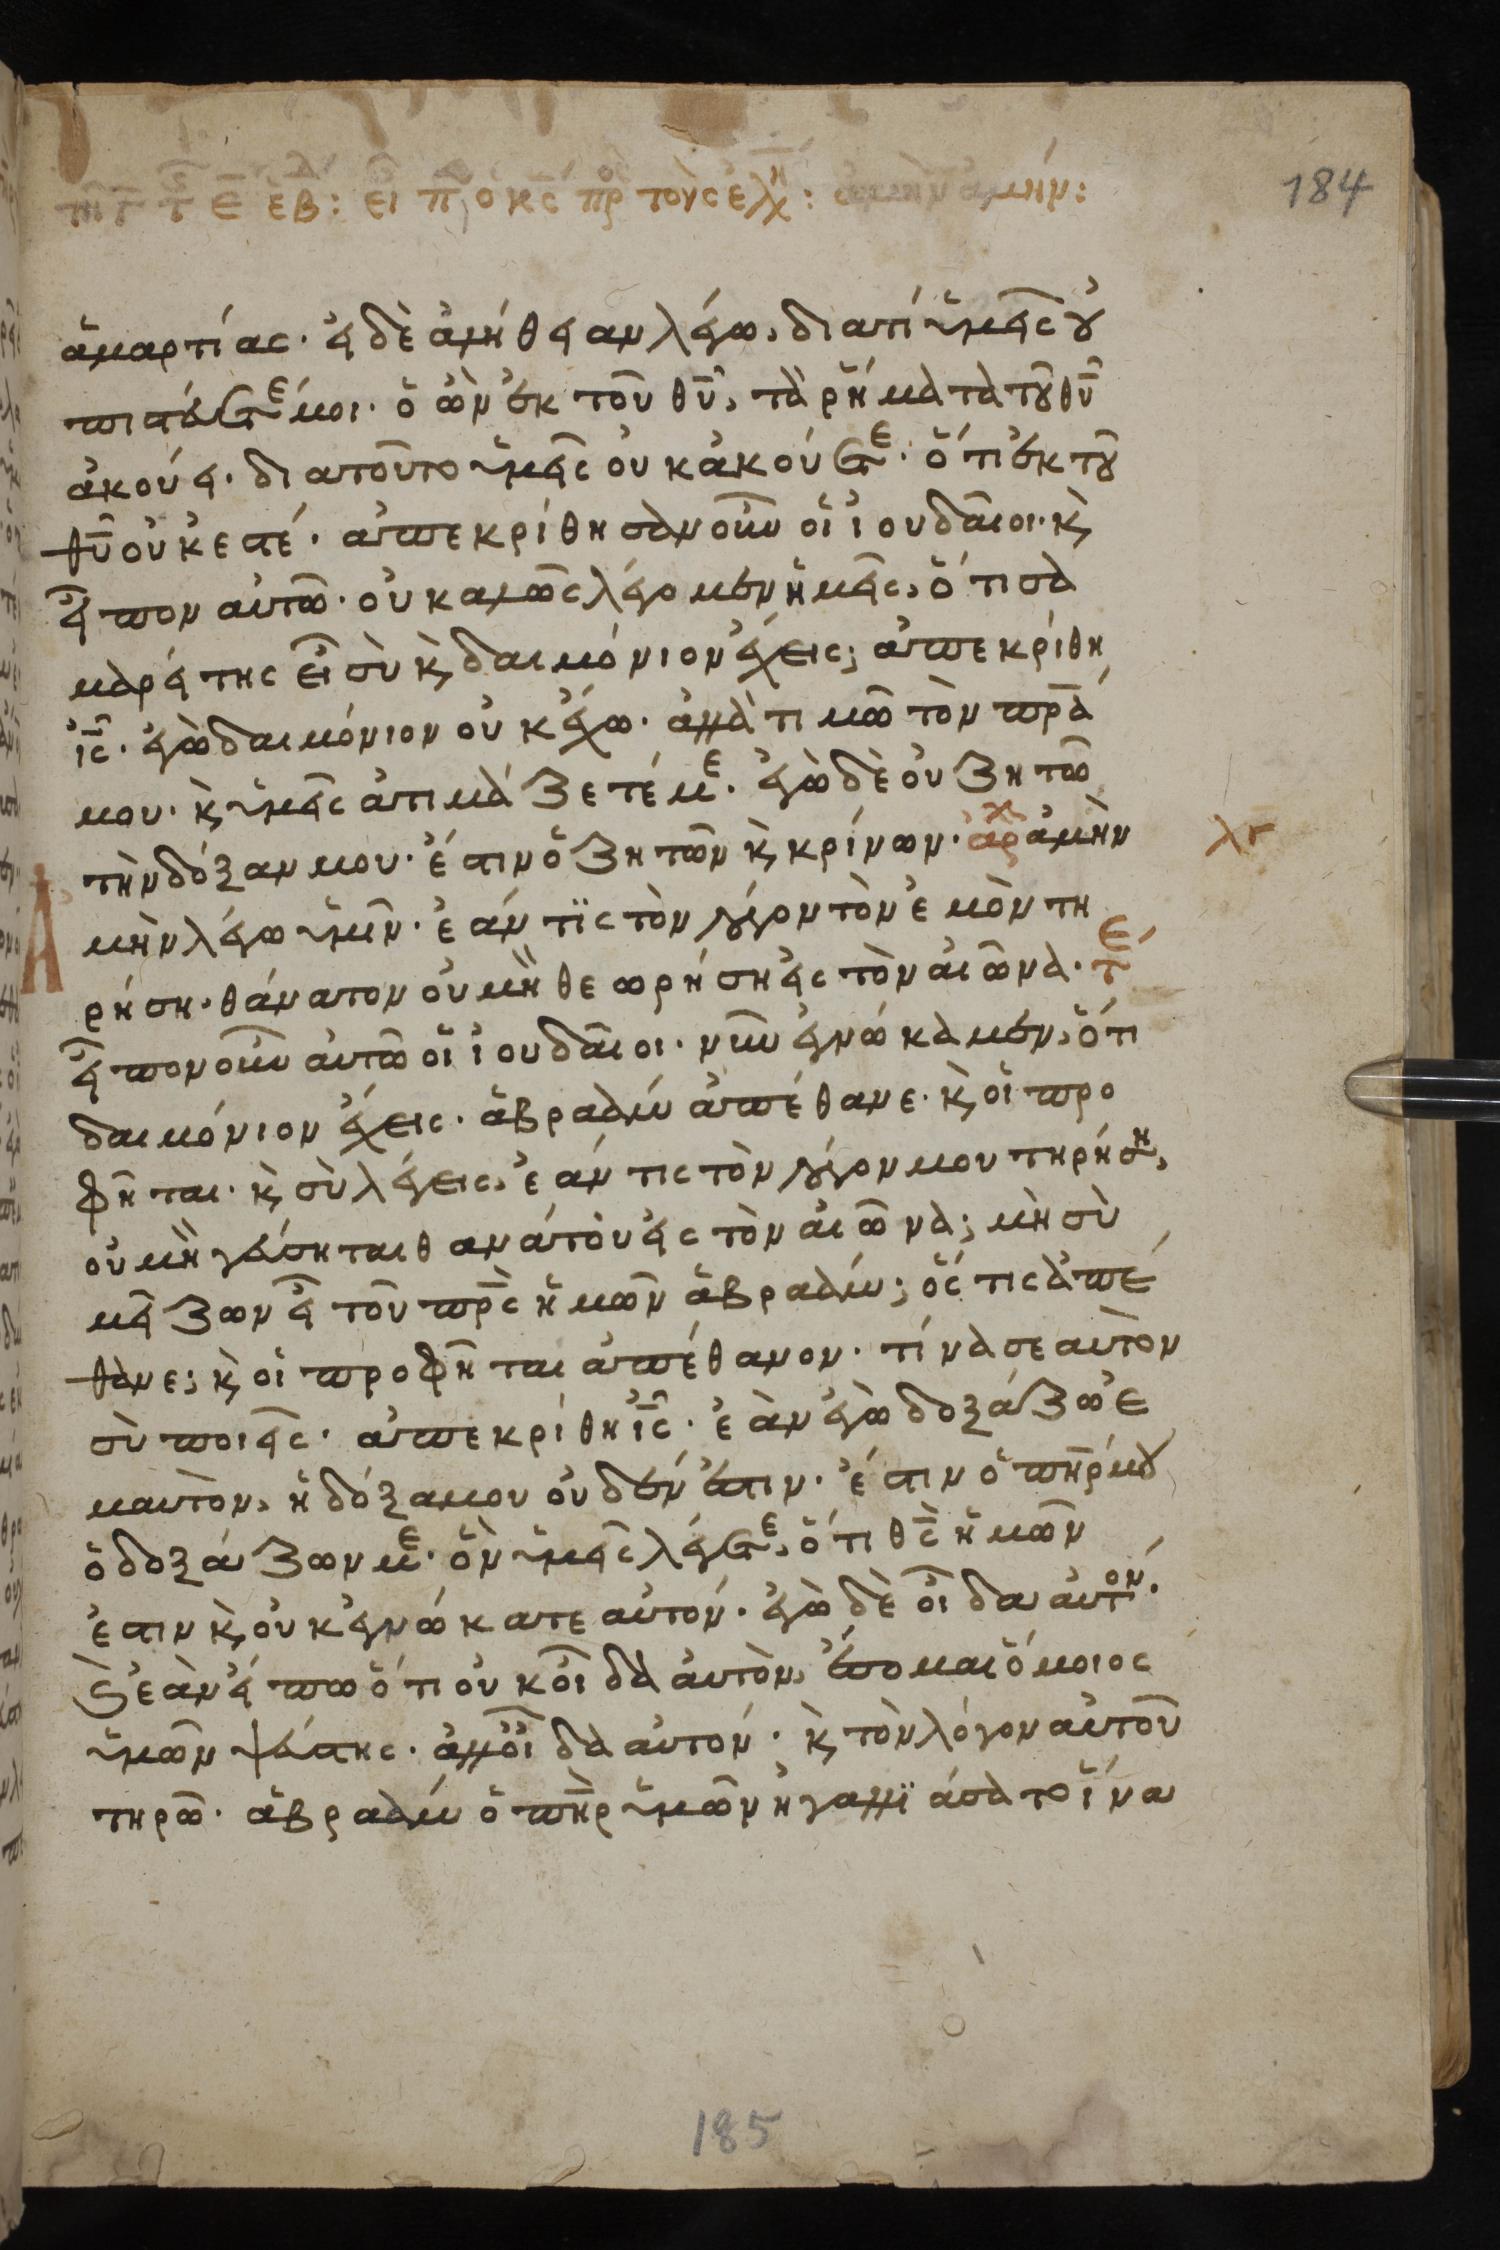 τῆ γ τ ε ἑβ : εἶπ ὁ κς πρ τοὺς ἐλ : ἀμὴν ἀμήν :
184
ἁμαρτίας · εἰ δὲ ἀλήθειαν λέγω, διατί ὑμεῖς οὐ
πιστεύετέ μοι · ὁ ὢν ἐκ τοῦ θῦ, τὰ ῥήματα τοῦ θῦ
ἀκούει · διατοῦτο ὑμεῖς οὐκ ἀκούετε · ὅτι ἐκ τοῦ
θῦ οὐκ ἐστέ · ἀπεκρίθησαν οὖν οἱ ἰουδαῖοι · κ
εἶπον αὐτῶ · οὐ καλῶς λέγομεν ἡμεῖς, ὅτι σα
μαρείτης εἶ σὺ κ δαιμόνιον ἔχεις ; ἀπεκρίθη
ἰς · ἐγὼ δαιμόνιον οὐκ ἔχω · ἀλλὰ τιμῶ τὸν πρα
μου · κ ὑμεῖς ἀτιμάζετέ με · ἐγὼ δὲ οὐ ζητῶ
τὴν δόξαν μου · ἔστιν ὁ ζητῶν κ κρίνων · ἀρχ ἀμὴν
λγ
Ἀμὴν λέγω ὑμῖν · ἐάν τϊς τὸν λόγον τὸν ἐμὸν τη
ρήση · θάνατον οὐ μὴ θεωρήση εἰς τὸν αἰῶνα · τε
εἶπον οὖν αὐτῶ οἱ ἰουδαῖοι · νῦν ἐγνώκαμεν, ὅτι
δαιμόνιον ἔχεις · ἁβραὰμ ἀπέθανε · κ οἱ προ
φῆται · κ σὺ λέγεις, ἐάν τις τὸν λόγον μου τηρήση,
οὐ μὴ γεύσηται θανάτου εἰς τὸν αἰῶνα ; μὴ σὺ
μείζων εἶ τοῦ πρς ἡμῶν ἁβραάμ ; ὅς τις ἀπέ
θανε ; κ οἱ προφῆται ἀπέθανον · τίνα σεαυτὸν
σὺ ποιεῖς · ἀπεκρίθη ἰς · ἐὰν ἐγὼ δοξάζω ἐ
μαυτὸν, ἡ δόξα μου οὐδέν ἐστιν · ἔστιν ὁ πηρ μου
ὁ δοξάζων με · ὃν ὑμεῖς λέγετε, ὅτι θς ἡμῶν
ἐστιν κ οὐκ ἐγνώκατε αὐτόν · ἐγὼ δὲ οἶδα αὐτόν ·
κ ἐὰν εἴπω ὅτι οὐκ οἶδα αὐτὸν, ἔσομαι ὅμοιος
ὑμῶν ψεύστης · ἀλλ οἶδα αὐτόν · κ τὸν λόγον αὐτοῦ
τηρῶ · ἁβραὰμ ὁ πηρ ὑμῶν ἠγαλλϊάσατο ἵνα
185